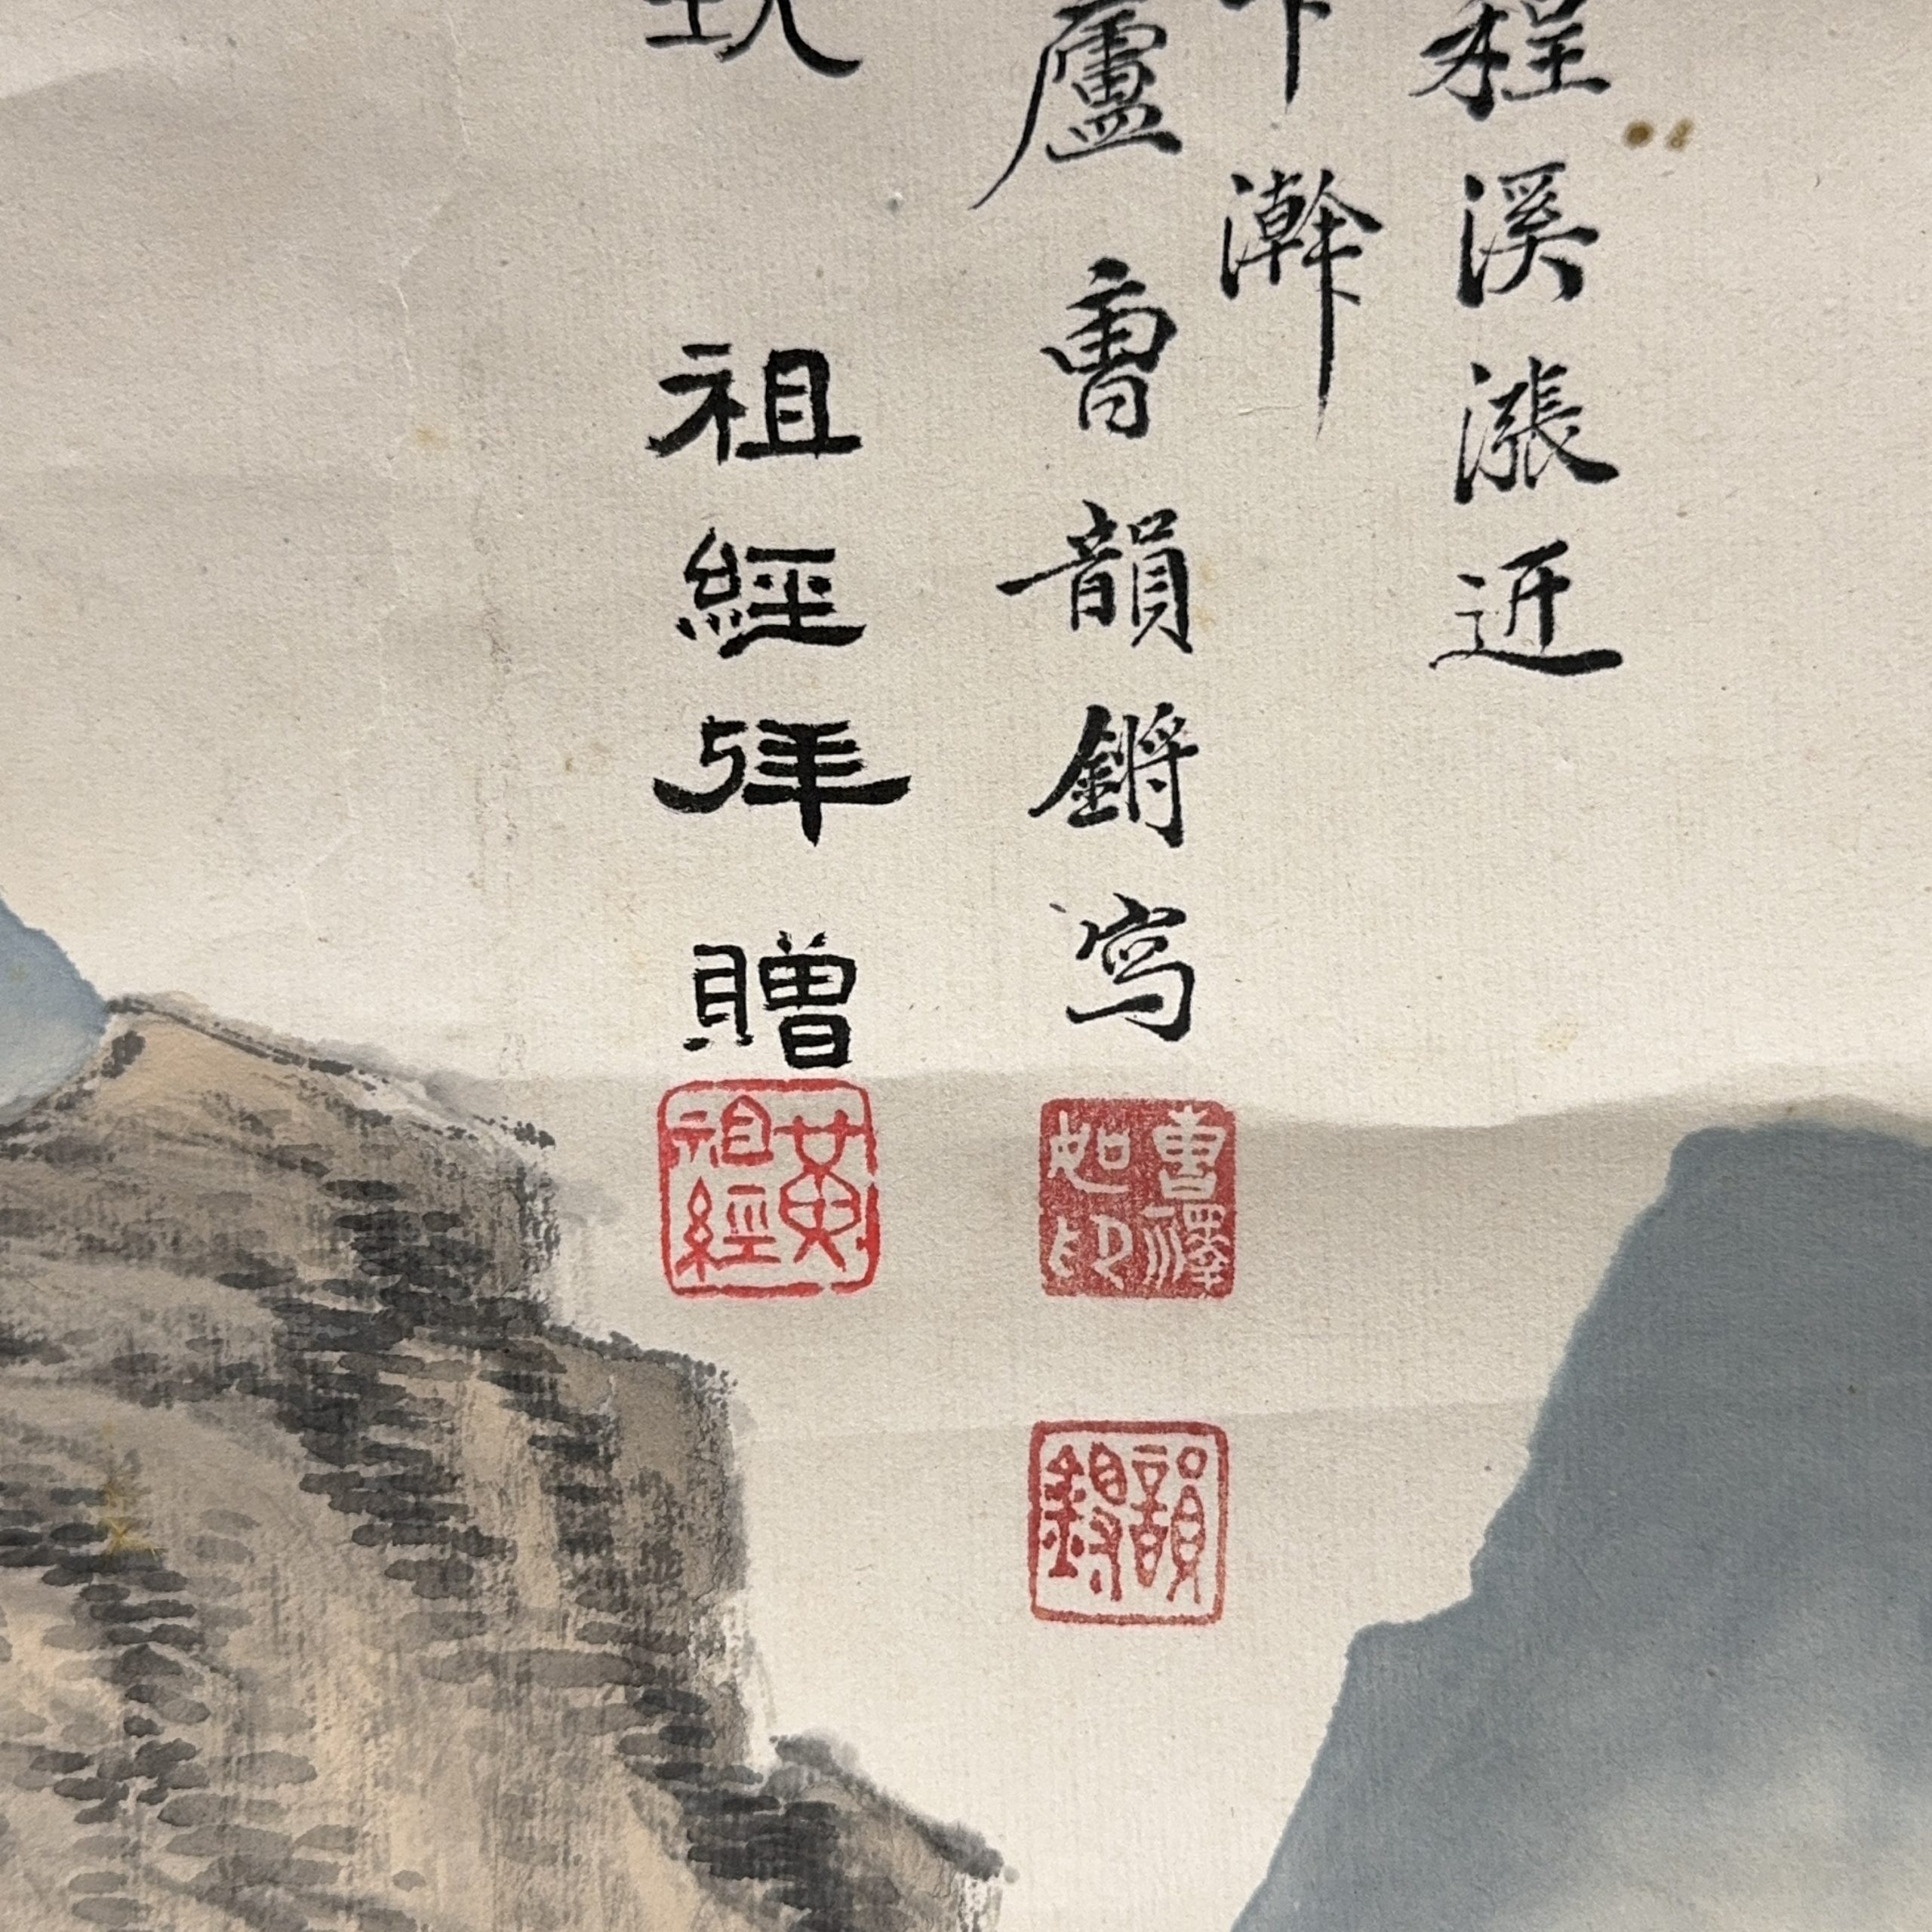 程溪漲近
瀚
廬曹韻鏘寫
祖經拜贈
黃祖經
曹澤如印
韻鏘